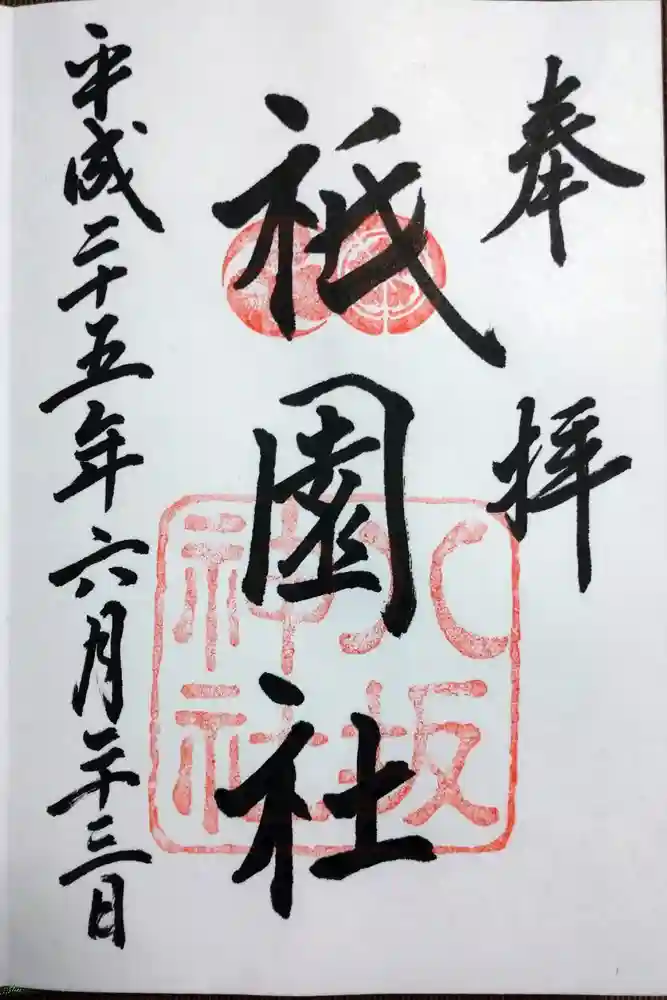 奉拝
祇園社
八坂
神社
平成二十五年六月二十三日